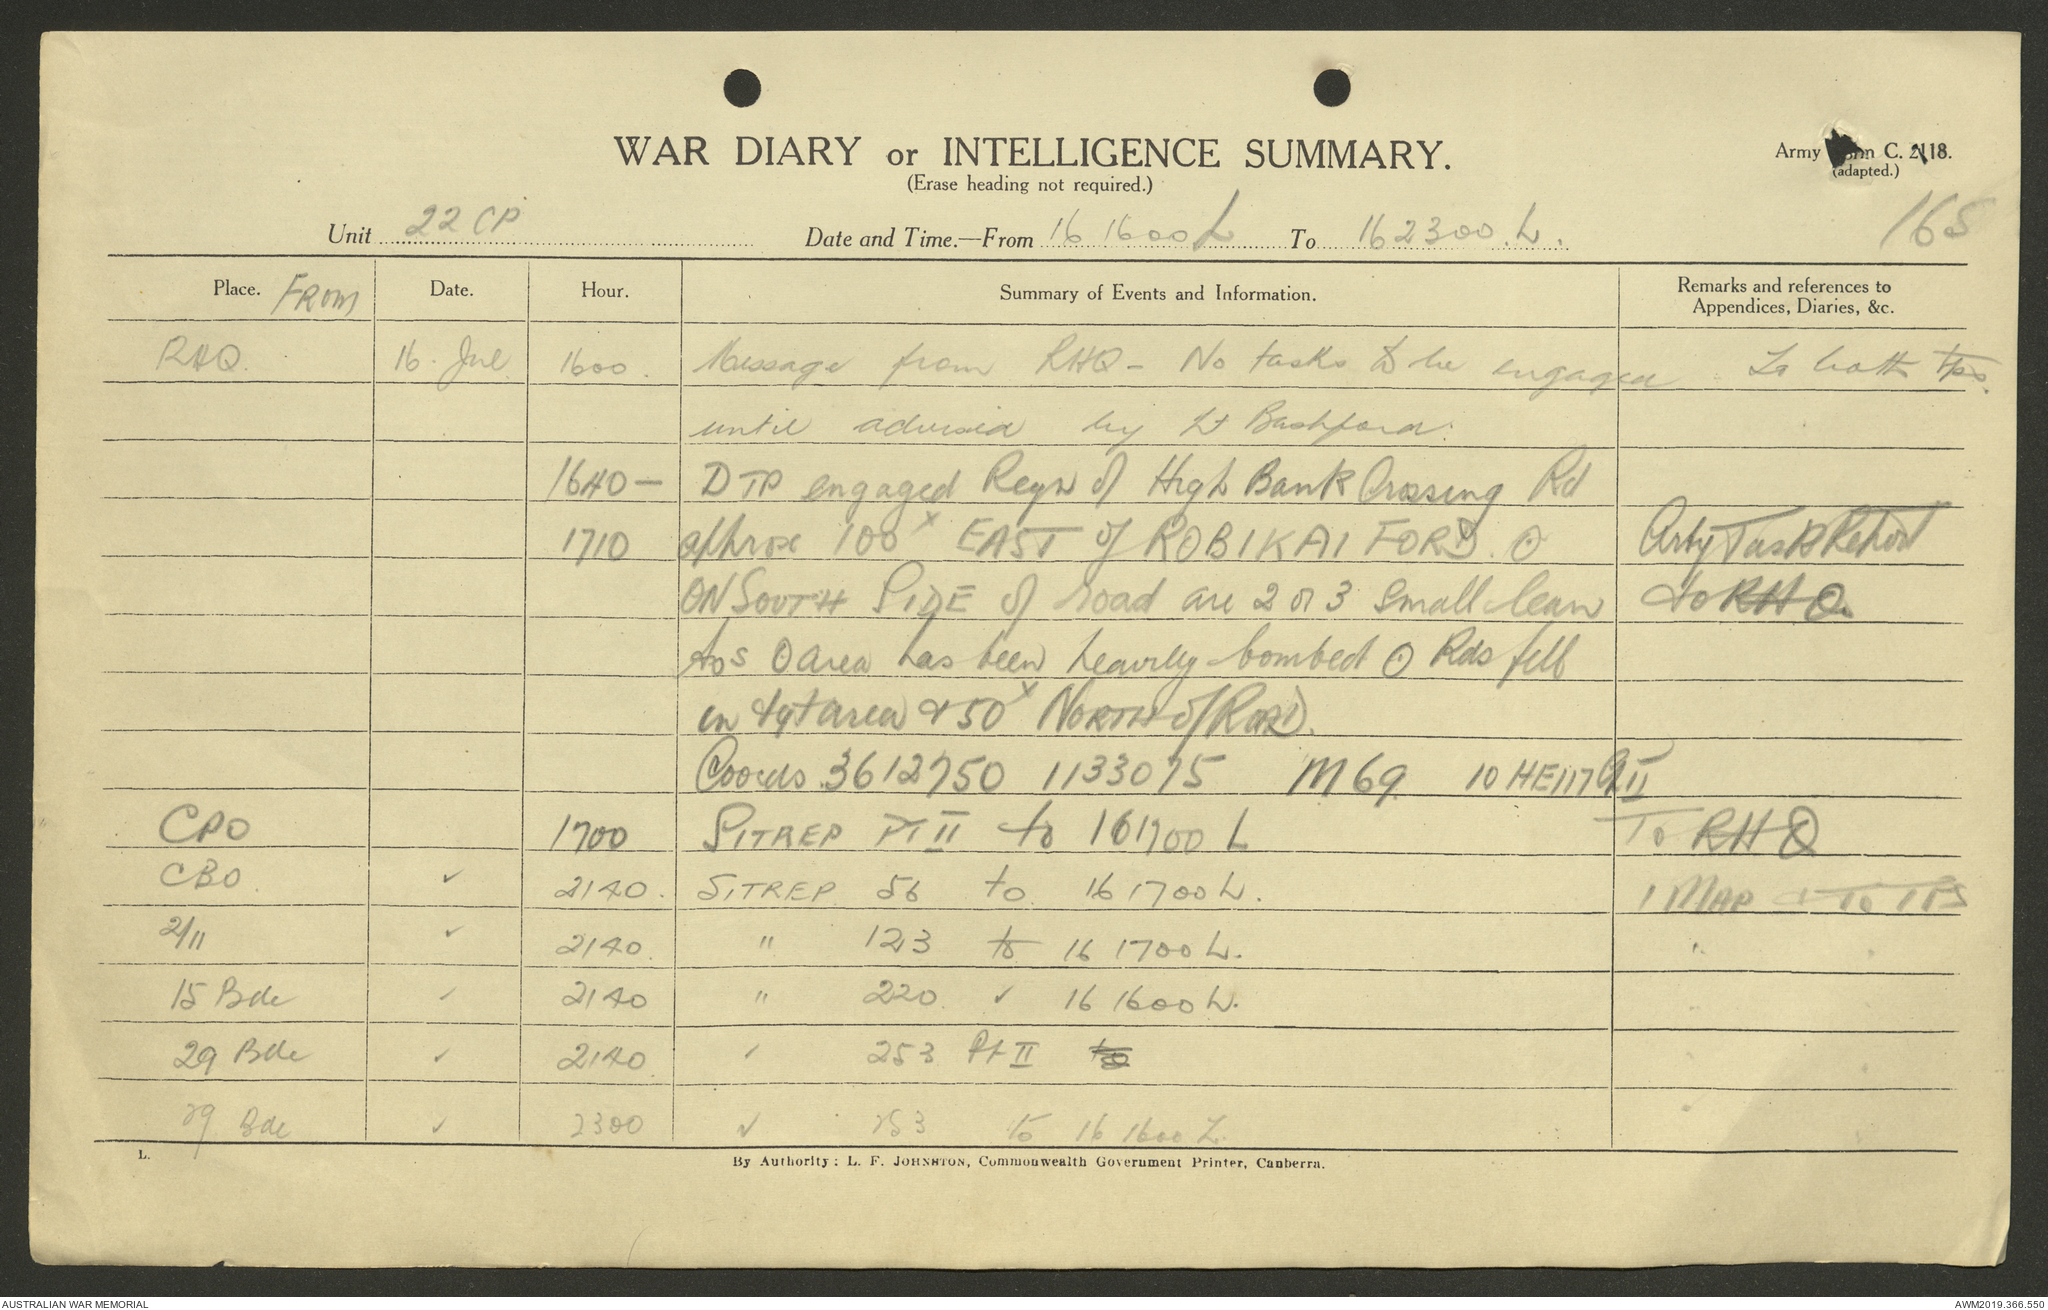 WAR DIARY or INTELLIGENCE SUMMARY.
(Erase heading not required.)
Army Form C. 2118.
(adapted.)
165
Unit 22 CP Date and Time.—From 16 1600 L To 162300 L.
Place. FROM Date. Hour. Summary of Events and Information. Remarks and references to Appendices, Diaries, &c.
RHQ 16 Jul 1600. Message from RHQ - No tasks to be engaged To both tps.
until advised by Lt Bashford.
1640 - DTP engaged Regn of High Bank Crossing Rd
1710 approx 100x EAST of ROBIKAI FORD. ⊙ Arty Task Report
ON SOUTH SIDE of road are 2 or 3 small lean to RHQ.
tos ⊙ area has been heavily bombed ⊙ Rds fell
in tgt area & 50x NORTH of ROAD.
Coords 3612750 1133075 M69 10 HE117
CPO 1700 SITREP PT II to 161700 L To RHQ
CBO ✓ 2140. SITREP 56 to 16 1700 L. 1 MAP + TO TPS
2/11 ✓ 2140. " 123 to 16 1700 L. "
15 Bde ✓ 2140 " 220 ✓ 16 1600 L.
29 Bde ✓ 2140 ✓ 253 Pt II to
29 Bde ✓ 2300 ✓ 253 to 16 1600 L.
L.
By Authority: L. F. JOHNSTON, Commonwealth Government Printer, Canberra.
AUSTRALIAN WAR MEMORIAL
AWM2019.366.550